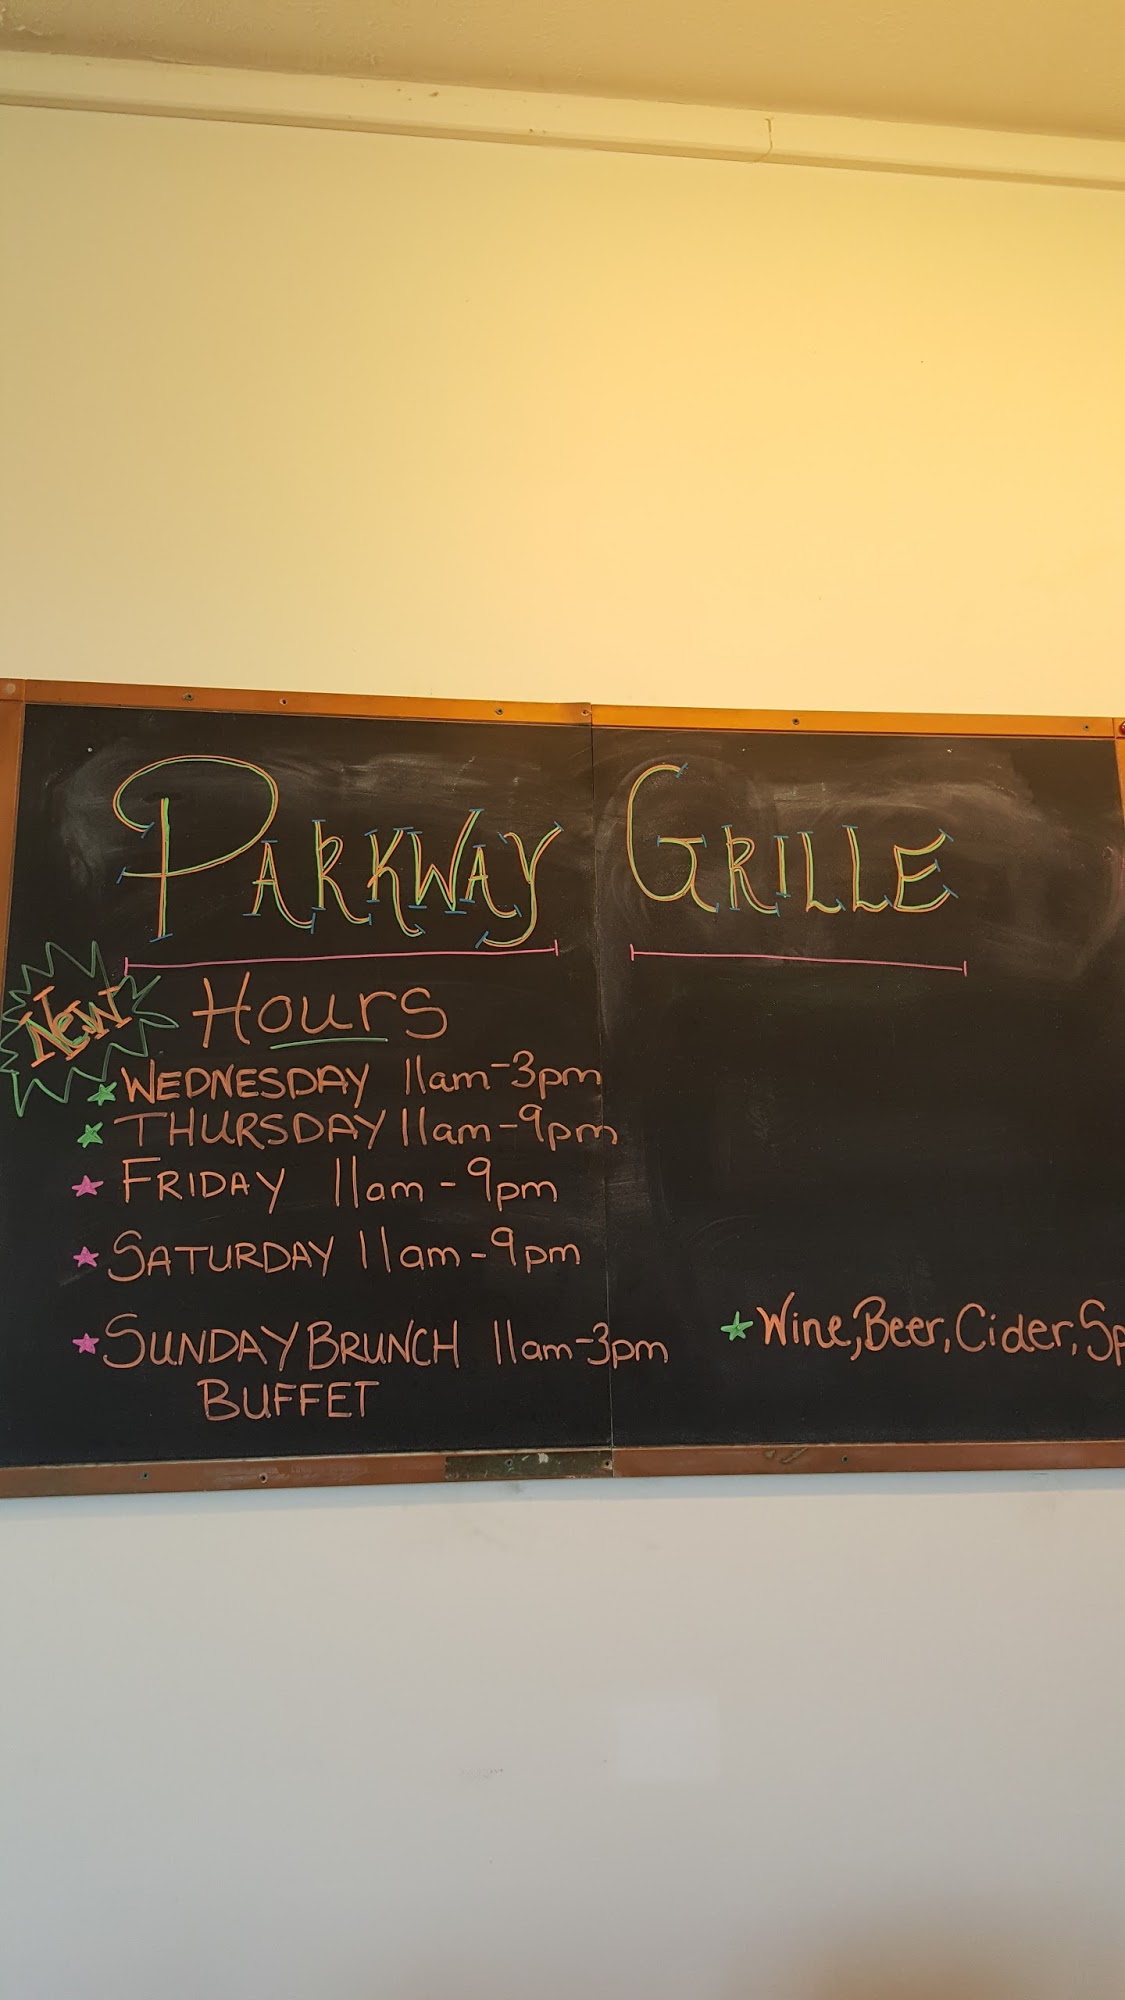 PARKWAY GRILLE
NEW
Hours
WEDNESDAY 11am-3pm
THURSDAY 11am-9pm
FRIDAY 11am-9pm
SATURDAY 11am-9pm
SUNDAY BRUNCH 11am-3pm
BUFFET
Wine, Beer, Cider,